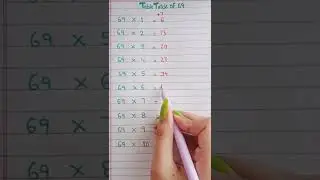 Table Table of 69
+7
69 × 1 = 6
69 × 2 = 13
69 × 3 = 20
69 × 4 = 27
69 × 5 = 34
69 × 6 =
69 × 7 =
69 × 8 =
69 × 9 =
69 × 10